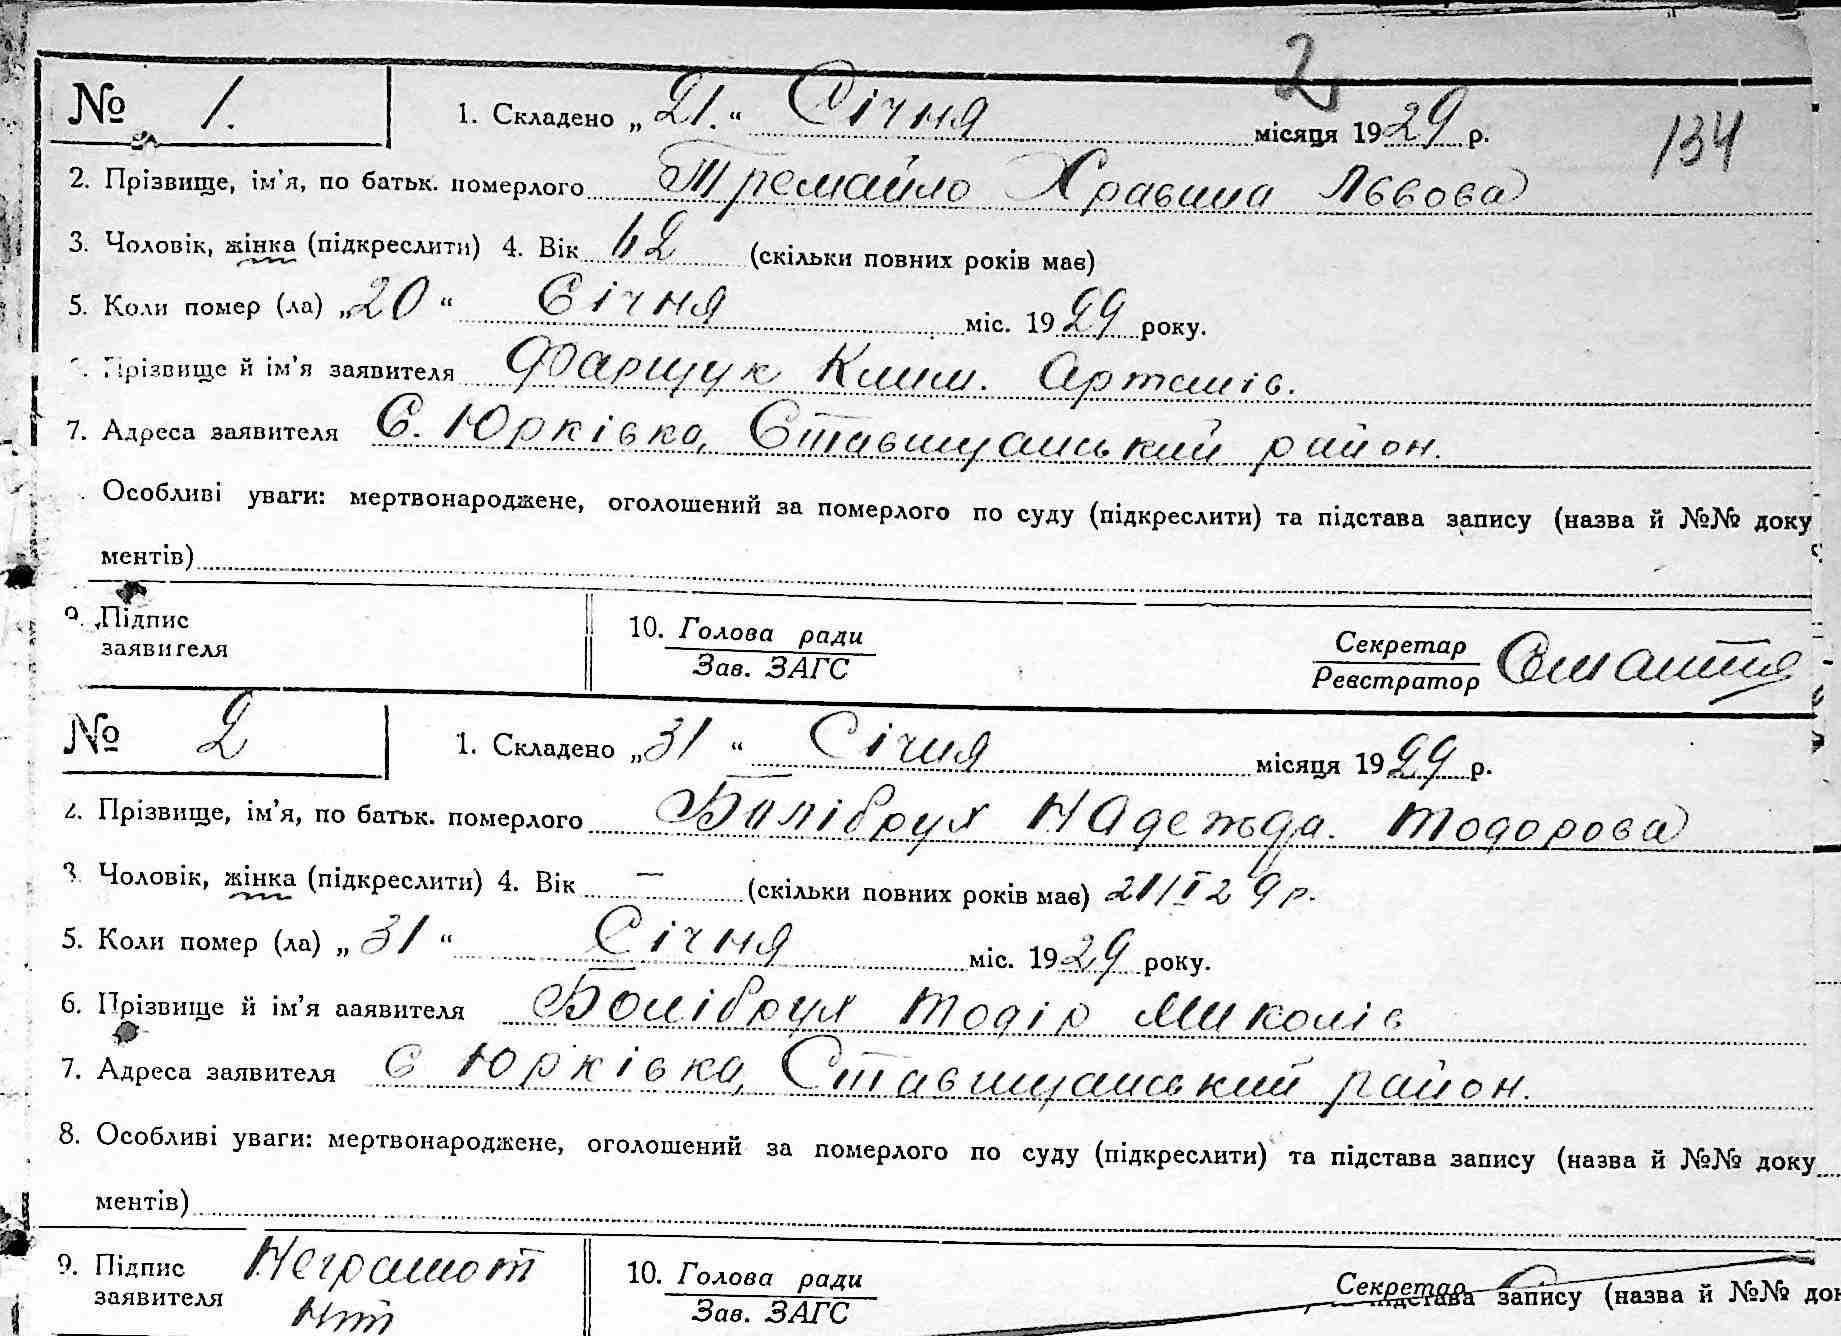 2
134
№ 1. 1. Складено „21.“ Січня місяця 1929 р.
2. Прізвище, ім'я, по батьк. померлого Тремайло Хравина Львова
3. Чоловік, жінка (підкреслити) 4. Вік 62 (скільки повних років має)
5. Коли помер (ла) „20“ Січня міс. 1929 року.
Прізвище й ім'я заявителя Фарщук Клим. Артемів.
7. Адреса заявителя С. Юрківка, Ставищанський район.
Особливі уваги: мертвонароджене, оголошений за померлого по суду (підкреслити) та підстава запису (назва й №№ доку
ментів)
9. Підпис заявителя 10. Голова ради Зав. ЗАГС Секретар Реєстратор
№ 2 1. Складено „31“ Січня місяця 1929 р.
2. Прізвище, ім'я, по батьк. померлого Болібрух Надежда. Тодорова
3. Чоловік, жінка (підкреслити) 4. Вік — (скільки повних років має) 21/I 29 р.
5. Коли помер (ла) „31“ Січня міс. 1929 року.
6. Прізвище й ім'я заявителя Болібрух Тодір Миколів
7. Адреса заявителя С Юрківка, Ставищанський район.
8. Особливі уваги: мертвонароджене, оголошений за померлого по суду (підкреслити) та підстава запису (назва й №№ доку
ментів)
9. Підпис заявителя Неграмот 10. Голова ради Зав. ЗАГС Секретар
підстава запису (назва й №№ док